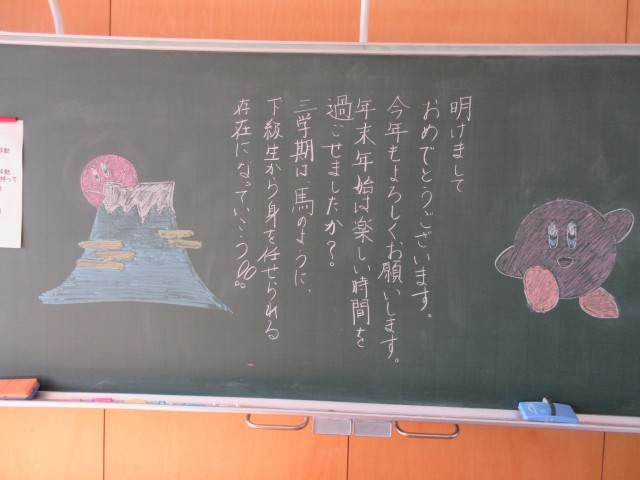 明けまして
おめでとうございます。
今年もよろしくお願いします。
年末年始は楽しい時間を
過ごせましたか？
三学期は馬のように、
下級生から身を任せられる
存在になっていこう!!